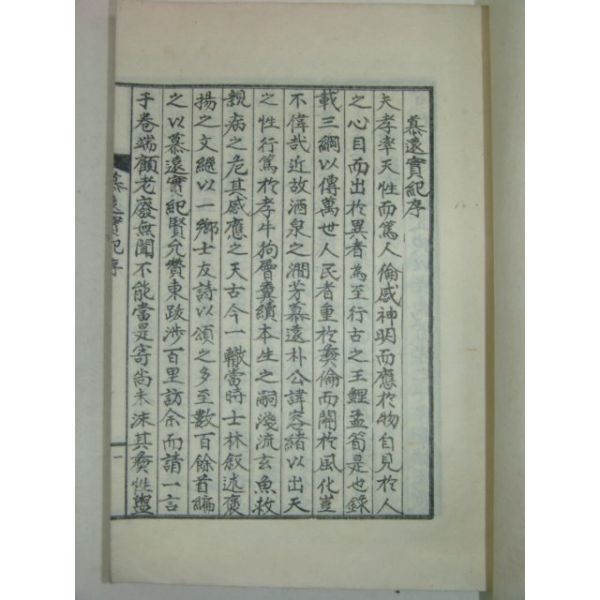 慕遠實紀序
夫孝率天性而篤人倫感神明而應於物自見於人
之心目而出於異者為至行古之王鯉孟筍是也錄
載三綱以傳萬世人民者重於彝倫而關於風化豈
不偉哉近故酒泉之澗芳慕遠朴公諱容緖以出天
之性行篤於孝牛狗嘗糞續本生之嗣淺流玄魚救
親病之危其感應之天古今一轍當時士林叙述褒
揚之文繼以一鄉士友詩以頌之多至數百餘首編
之以慕遠實紀賢允贊東跋涉百里訪余而請一言
于卷端顧老廢無聞不能當是寄尙未沫其彝性盥
慕遠實紀序
一